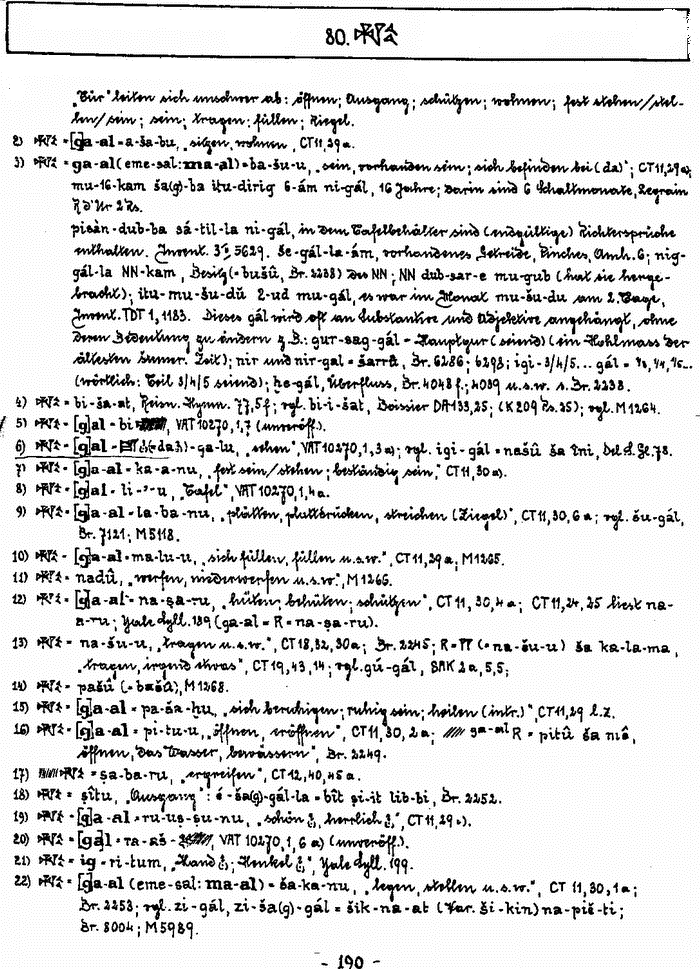 80. 𒅅
„Tür" leiten sich unschwer ab: öffnen; Ausgang; schützen; wohnen; fest stehen/stel-
len/sein; sein; tragen; füllen; Riegel.
2) 𒅅 = [ga-al = a-ša-bu, „sitzen, wohnen", CT 11, 29 a.
3) 𒅅 = ga-al (eme-sal: ma-al) = ba-šu-u, „sein, vorhanden sein; sich befinden bei (da)"; CT 11, 29 a;
mu-16-kam ša(g)-ba itu-dirig 6-ám ni-gál, 16 Jahre; darin sind 6 Schaltmonate, Legrain
Rs.
pisàn-dub-ba sá-til-la ni-gál, in dem Tafelbehälter sind (endgültige) Richtersprüche
enthalten. Invent. 5629. še-gál-la-ám, vorhandenes Getreide, Pinches, Amh. 6; nig-
gál-la NN-kam, Besitz (= bušû, Br. 2238) des NN; NN dub-sar-e mu-gub (hat sie herge-
bracht); itu-mu-šu-dŭ 2-ud mu-gál, es war im Monat mu-šu-du am 2. Tage,
Invent. TDT 1, 1183. Dieses gál wird oft an Substantive und Adjektive angehängt, ohne
deren Bedeutung zu ändern z.B.: gur-sag-gál = Hauptgur (seiend) (ein Hohlmass der
ältesten sumer. Zeit); nir und nir-gal = šarru, Br. 6286; 6293; igi-3/4/5... gál = 1/3, 1/4, 1/5...
(wörtlich: Teil 3/4/5 seiend); ḫe-gál, Überfluss, Br. 4048 f.; 4039 u.s.w. s. Br. 2238.
4) 𒅅 = bi-ša-at, Reisn. Hymn. 77, 5 f; vgl. bi-i-šat, Boissier DA 133, 25; (K 209 Rs. 25); vgl. M 1264.
5) 𒅅 = [g]al = bi, VAT 10270, 1, 7 (unveröff.).
6) 𒅅 = [g]al = -ga-lu, „sehen", VAT 10270, 1, 3 a); vgl. igi-gál = našû ša îni, Del. S. Gl. 78.
7) 𒅅 = [g]a-al = ka-a-nu, „fest sein/stehen; beständig sein", CT 11, 30 a).
8) 𒅅 = [g]al = li-'-u, „Tafel", VAT 10270, 1, 4 a.
9) 𒅅 = [g]a-al = la-ba-nu, „plätten, plattdrücken, streichen (Ziegel)", CT 11, 30, 6 a; vgl. šu-gál,
Br. 7121; M 5118.
10) 𒅅 = [g]a-al = ma-lu-u, „sich füllen, füllen u.s.w.", CT 11, 29 a; M 1265.
11) 𒅅 = nadû, „werfen, niederwerfen u.s.w.", M 1266.
12) 𒅅 = [g]a-al = na-ṣa-ru, „hüten, behüten; schützen", CT 11, 30, 4 a; CT 11, 24, 25 liest na-
a-ru; Yale Syll. 139 (ga-al = R = na-ṣa-ru).
13) 𒅅 = na-šu-u, „tragen u.s.w.", CT 18, 32, 30 a; Br. 2245; R = (= na-šu-u) ša ka-la-ma,
„tragen, irgend etwas", CT 19, 43, 14; vgl. gú-gál, SAK 2 a, 5, 5;
14) 𒅅 = pašû (= bašû), M 1268.
15) 𒅅 = [g]a-al = pa-ša-ḫu, „sich beruhigen; ruhig sein; heilen (intr.)" CT 11, 29 l. Z.
16) 𒅅 = [g]a-al = pi-tu-u, „öffnen, eröffnen", CT 11, 30, 2 a; ga-al R = pitû ša mê,
öffnen, das Wasser, bewässern", Br. 2249.
17) 𒅅 = ṣa-ba-ru, „ergreifen", CT 12, 40, 45 a.
18) 𒅅 = ṣîtu, „Ausgang": é-ša(g)-gál-la = bît ṣi-it lib-bi, Br. 2252.
19) 𒅅 = [g]a-al = ru-uṣ-ṣu-nu, „schön, herrlich", CT 11, 29.
20) 𒅅 = [gal = ra-aš-, VAT 10270, 1, 6 a) (unveröff.).
21) 𒅅 = ig = ri-tum, „Hand; Henkel", Yale Syll. 199.
22) 𒅅 = [g]a-al (eme-sal: ma-al) = ša-ka-nu, „legen, stellen u.s.w.", CT 11, 30, 1 a;
Br. 2253; vgl. zi-gál, zi-ša(g)-gál = šik-na-at (Var. ši-kin) na-piš-ti;
Br. 8004; M 5989.
- 190 -